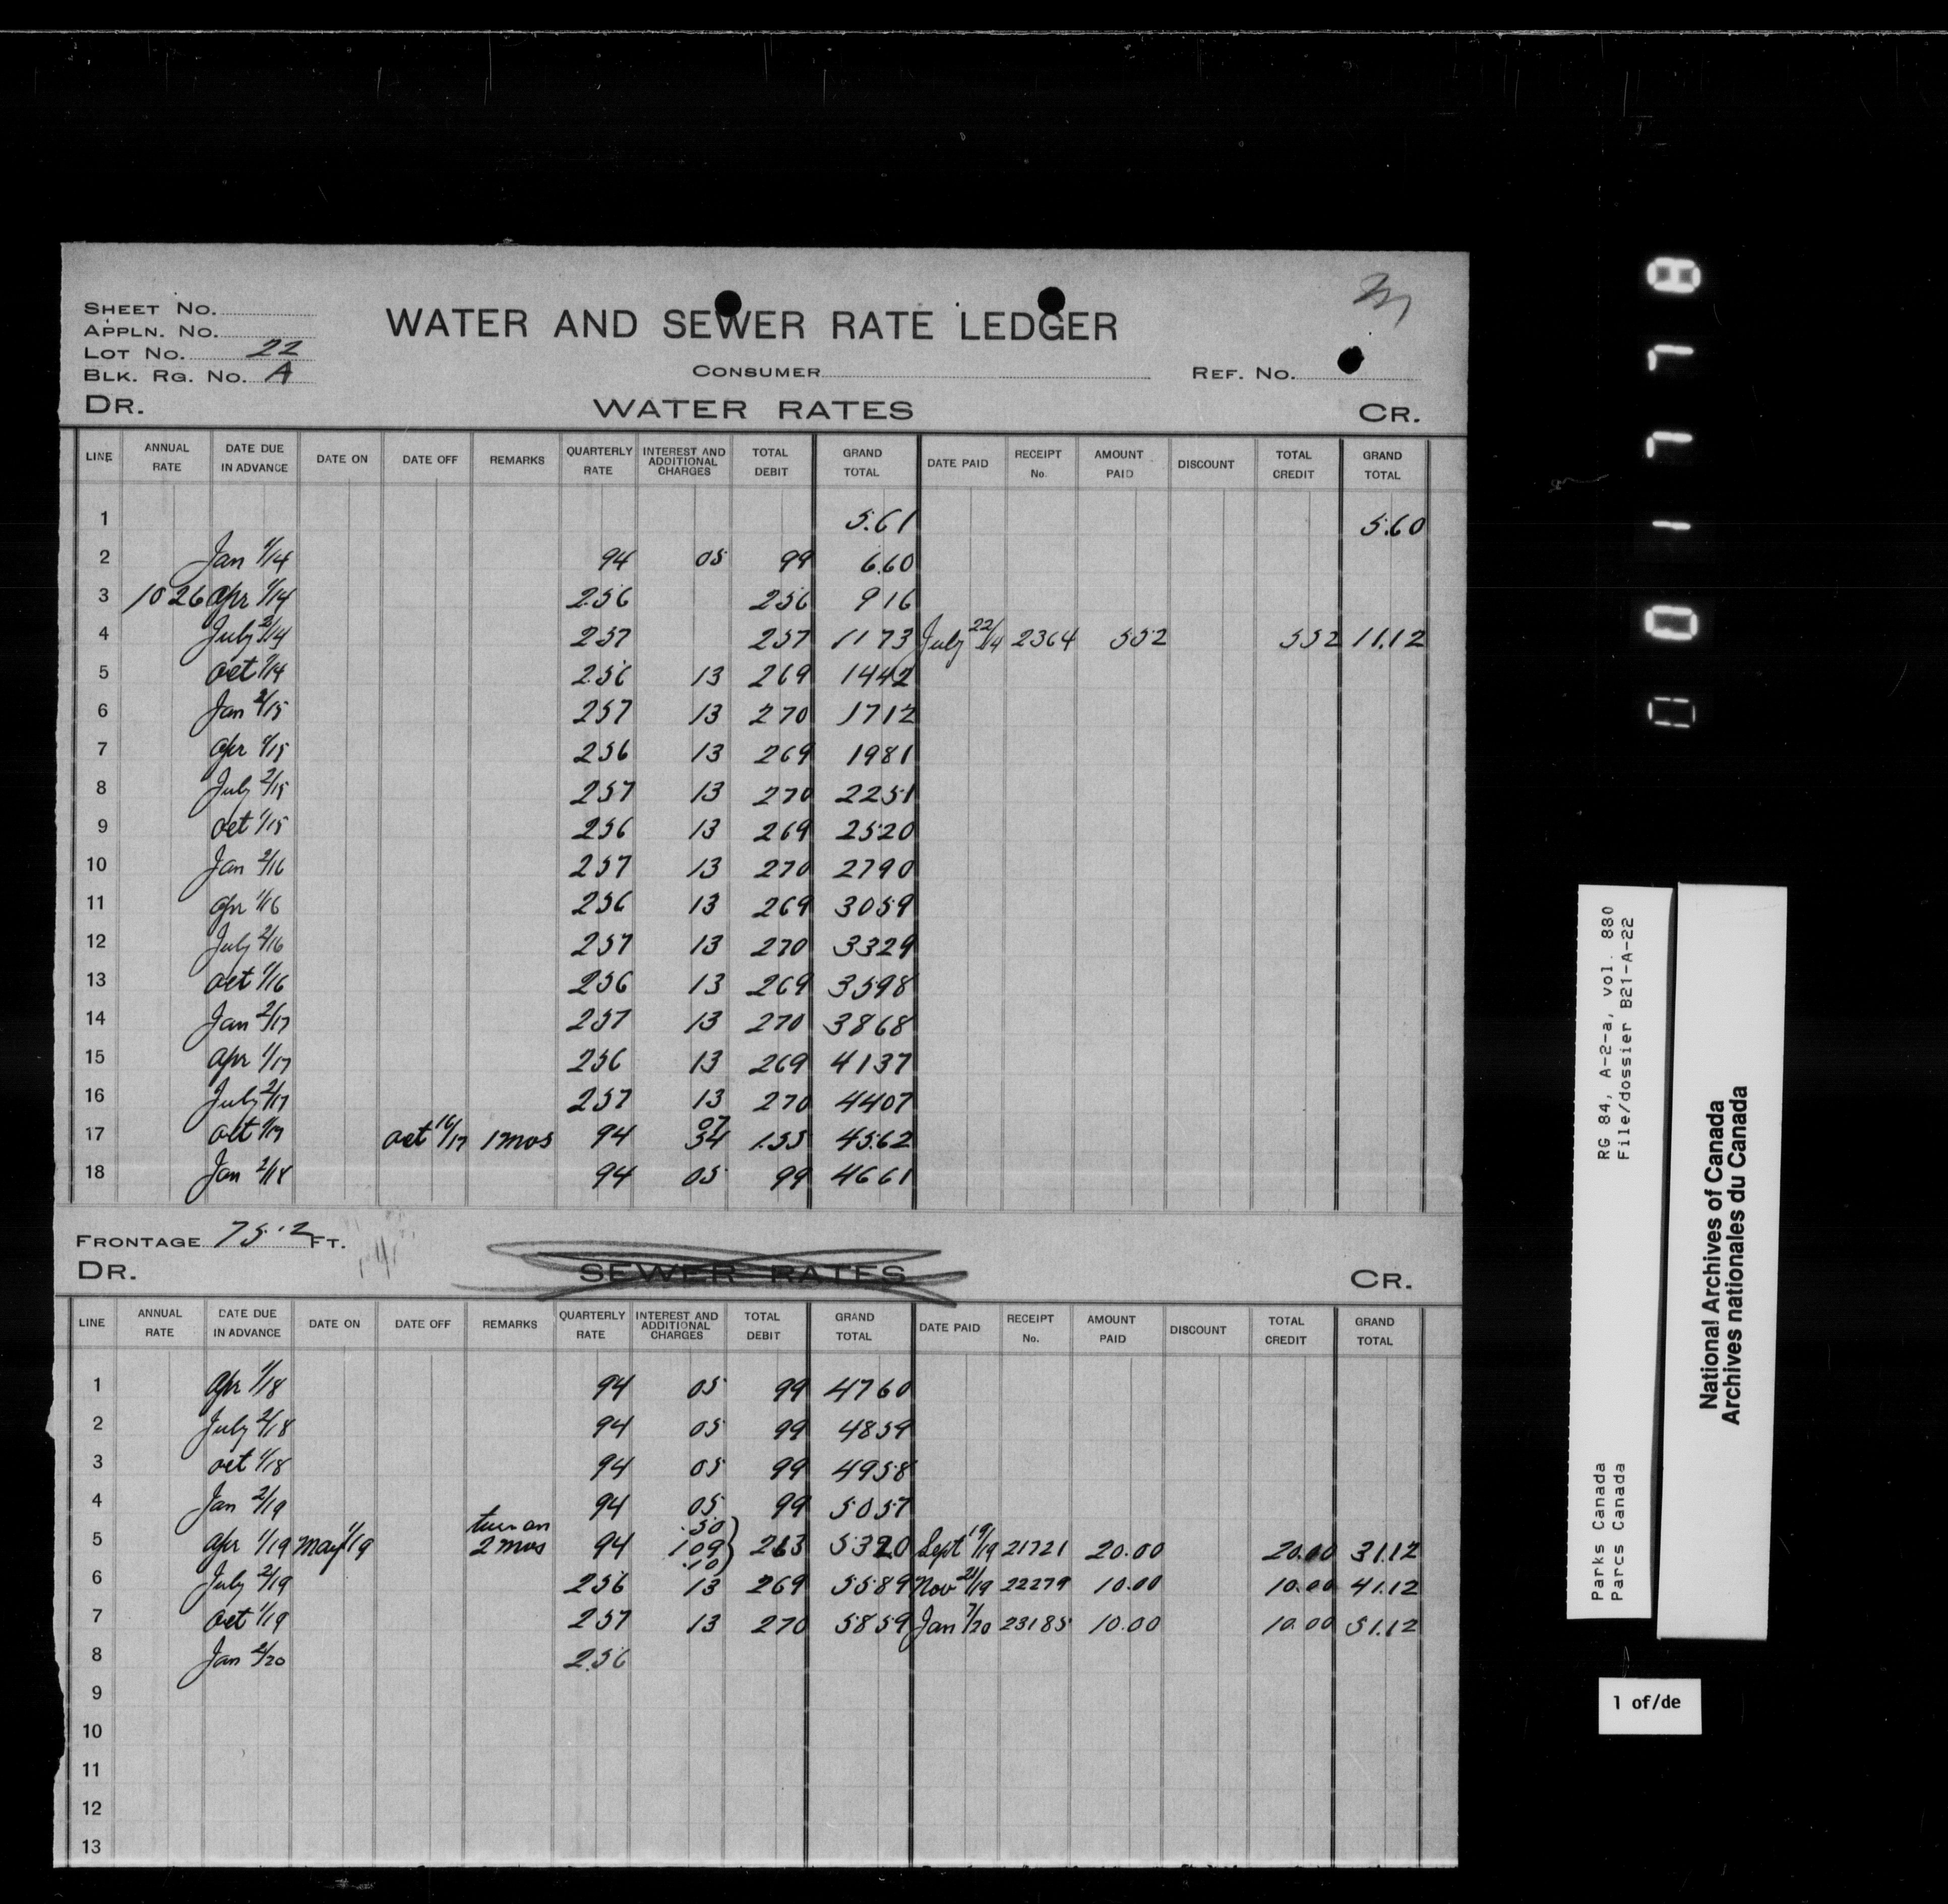 SHEET NO.
APPLN. NO.
LOT NO. 22
BLK. RG. NO. A
WATER AND SEWER RATE LEDGER
CONSUMER
REF. NO.
DR. WATER RATES CR.
LINE ANNUAL RATE DATE DUE IN ADVANCE DATE ON DATE OFF REMARKS QUARTERLY RATE INTEREST AND ADDITIONAL CHARGES TOTAL DEBIT GRAND TOTAL DATE PAID RECEIPT No. AMOUNT PAID DISCOUNT TOTAL CREDIT GRAND TOTAL
1 5.61 5.60
2 Jan 1/14 94 05 99 6.60
3 10 26 Apr 1/14 2.56 256 9 16
4 July 2/14 257 257 11 73 July 22/14 2364 552 552 11.12
5 Oct 1/14 2.56 13 269 1442
6 Jan 2/15 257 13 270 1712
7 Apr 1/15 256 13 269 1981
8 July 2/15 257 13 270 2251
9 Oct 1/15 256 13 269 2520
10 Jan 2/16 257 13 270 2790
11 Apr 1/16 256 13 269 3059
12 July 2/16 257 13 270 3329
13 Oct 1/16 256 13 269 3598
14 Jan 2/17 257 13 270 3868
15 Apr 1/17 256 13 269 4137
16 July 2/17 257 13 270 4407
17 Oct 1/17 Oct 16/17 1 mos 94 07 54 1.55 4562
18 Jan 2/18 94 05 99 4661
FRONTAGE 75.2 FT.
DR. SEWER RATES CR.
LINE ANNUAL RATE DATE DUE IN ADVANCE DATE ON DATE OFF REMARKS QUARTERLY RATE INTEREST AND ADDITIONAL CHARGES TOTAL DEBIT GRAND TOTAL DATE PAID RECEIPT No. AMOUNT PAID DISCOUNT TOTAL CREDIT GRAND TOTAL
1 Apr 1/18 94 05 99 4760
2 July 2/18 94 05 99 4859
3 Oct 1/18 94 05 99 4958
4 Jan 2/19 94 05 99 5057
turn on .50
5 Apr 1/19 May 1/19 2 mos 94 1 09 263 5320 Sept 19/19 21721 20.00 20.00 31.12
.10
6 July 2/19 256 13 269 5589 Nov 21/19 22279 10.00 10.00 41.12
7 Oct 1/19 257 13 270 5859 Jan 7/20 23185 10.00 10.00 51.12
8 Jan 2/20 2.56
9
10
11
12
13
0 1 7 7 8
RG 84, A-2-a, vol. 880
File/dossier B21-A-22
Parks Canada
Parcs Canada
National Archives of Canada
Archives nationales du Canada
1 of/de